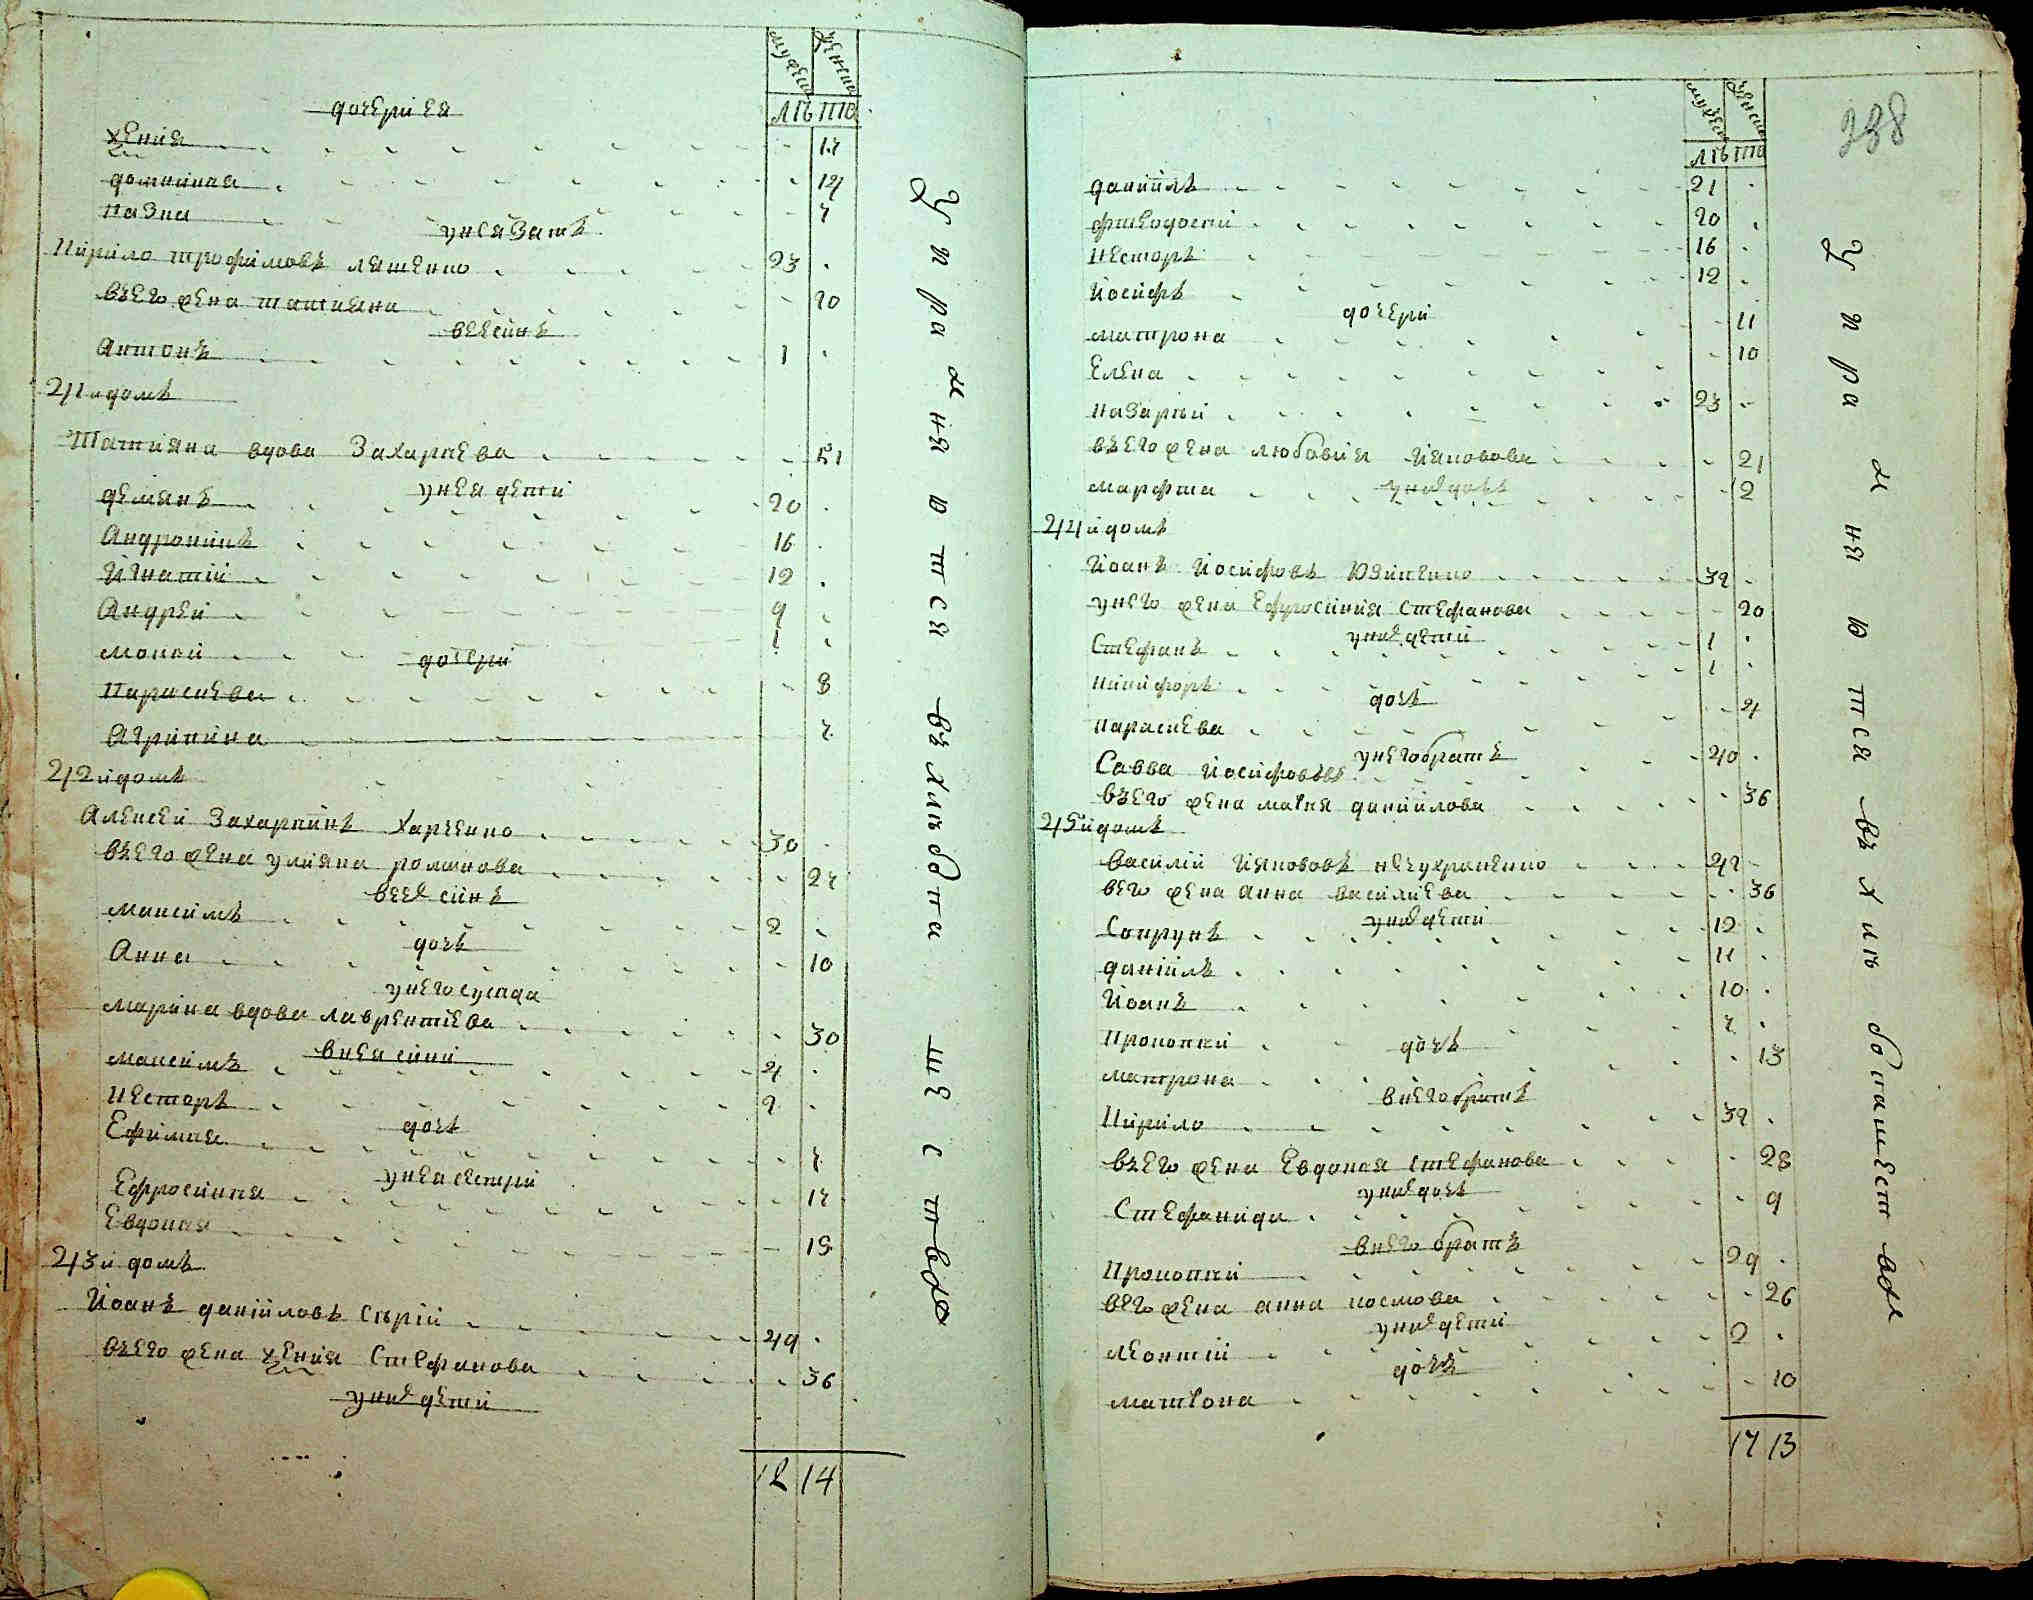 мужеска женска
лѣто
дочери ея
Ксения 17
домникия 14
назна 7
у нея Зать
Кирило трофимовъ ляшенко 23
въ его жена татияна 20
в нея сынъ
Антонъ 1
41 й домъ
Татияна вдова Захариева 51
у нея дети
демянъ 20
Андроникъ 16
Игнатий 12
Андрей 9
мокей 1
дочери
Параскева 8
Агрипина 7
42 й домъ
Алексей Захариинъ Харченко 30
въ его жена улияна романова 27
в нея сынъ
максимъ 2
дочь
Анна 10
у него сусѣда
марина вдова лаврентиева 30
в нея сини
максимъ 4
Несторъ 2
дочь
Ефимия 7
у нея сестри
Ефросиния 17
Евдокия 15
43 й домъ
Иоанъ данииловъ Сѣрий 49
въ его жена Ксения Стефанова 36
у них дети
12 14
Упражняются въ хлѣбопашествѣ
338
мужеска женска
лѣто
данийлъ 21
фтеодосий 20
Несторъ 16
Иосифъ 12
дочери
матрона 11
Елена 10
назарий 23
въ его жена любовия Ияковова 21
у них дочь
марфта 2
44 й домъ
Иоанъ Иосифовъ Юзипенко 32
у него жена Ефросиния Стефанова 20
у них дети
Стефанъ 1
Никифоръ 1
дочь
параскева 4
у него братъ
Савва Иосифовъ 40
въ его жена мария данийлова 36
45 й домъ
Василий Ияковъ незхраненко 42
в его жена анна василиева 36
у них дети
Сопрунъ 12
данийлъ 11
Иоанъ 10
Прокопий 7
дочь
матрона 13
в него братъ
Кирило 32
въ его жена Евдокия Стефанова 28
у них дочь
Стефанида 9
в него братъ
Прокопий 29
в его жена анна космова 26
у них дети
леонтий 2
дочь
матрона 10
17 13
Упражняются въ хлѣбопашествѣ